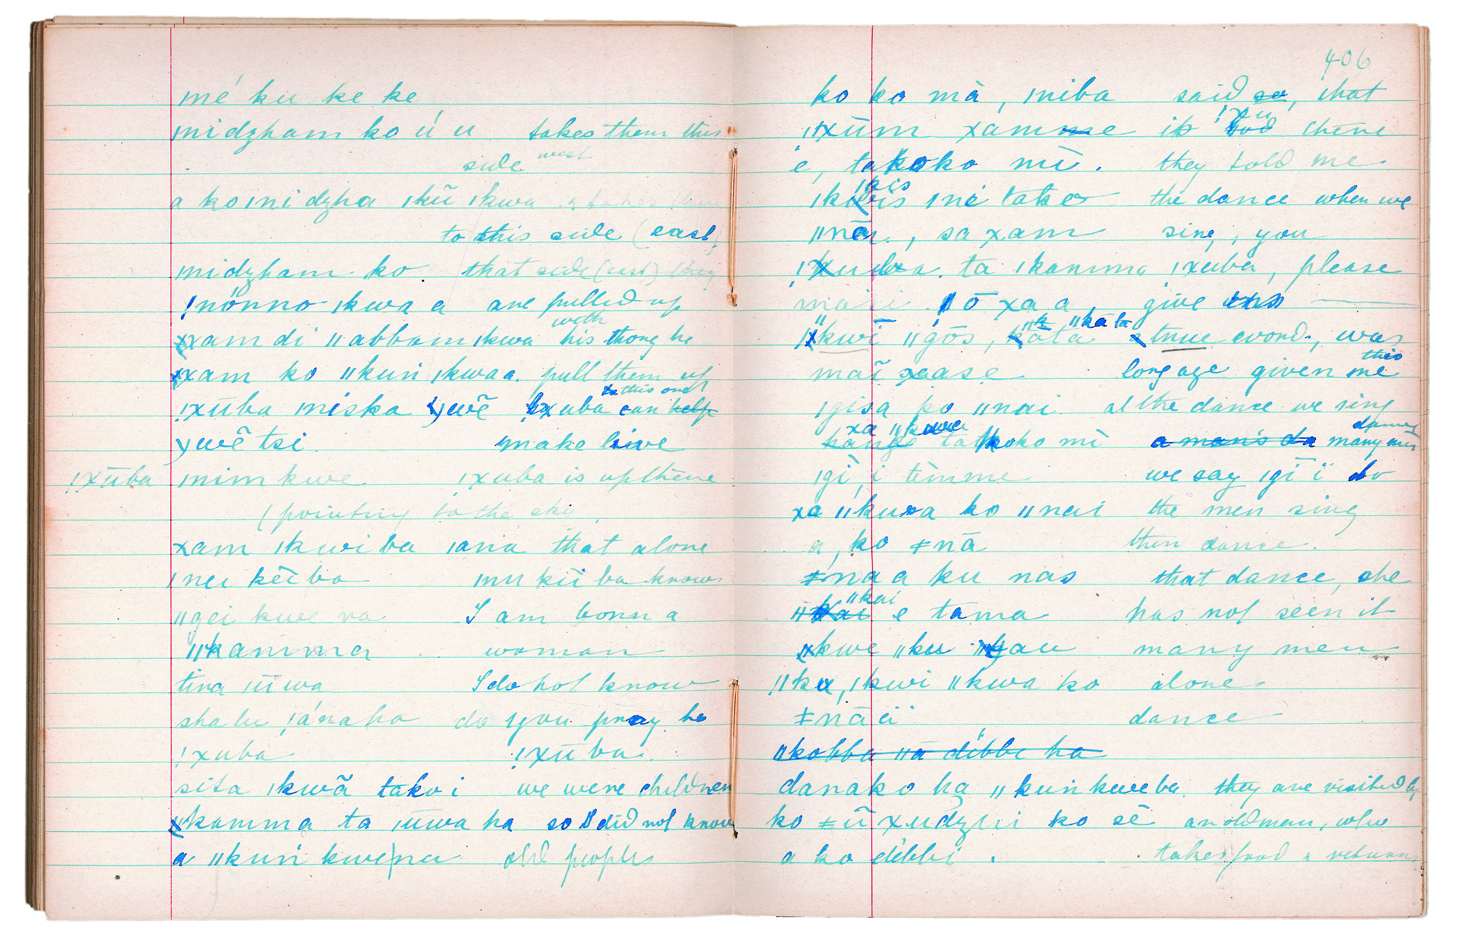 mé ku ke ke
ınidzham ko ú u takes them this
side west
a ko ınidzha ıkũ ıkwa & takes them
to this side (east,
ınidzham ko that side (east) they
!nönno ıkwa a are pulled up
xam di ǁabbam ıkwa with his thong he
xam ko ǁkuń ıkwaa. pull them up
!xūba ıniska ywẽ !xuba can help to this one
ywẽ tsi. make live
!xūba ınim kwe. !xuba is up there
(pointing to the sky.
xam ıkwi ba ıana that alone
ınu kūba know
ǁgei kwe na I am born a
ǁkamma woman
tina ıūwa I do not know
ıánaha do you pray he
!xuba !xūba.
sisa ıkwã tako i we were children
ǁkamma ta ıūwa ha so I did not know
a ǁkuń kwe na old people
406
ko ko mā, ıniba said so, that
!xūm xamme it !xu God there
é, takoko mī. they told me
ıkais ıni take the dance when we
ǁnāı., sa xam sing, you
!xuba. ta ıkamma !xuba, please
maii ō xa a, give
ǁkwī ǁgōs, ǁkāta true word, was
maī xase long ago given me this
ıgisa ko ǁnai. all the dance we sing
xa ǁkwe takoko mī a man's da many men dance
ıgī, i tēmme we say ıgī ï do
xa ǁkuxa ko ǁnai the men sing
a, ko ǂnā then dance.
ǂnaa ku nas that dance, she
ǁkai ǁkai e tama has not seen it
kwe ǁku au many men
ǁku, ıkwi ǁkwa ko alone
ǂnā ïï dance
ǁkobba ǁā díbbi ha
danako ha ǁkuń kweba. they are visited by
ko ǂū xudzhi ko sē an old man, who
a ko díbbi. takes food & returns